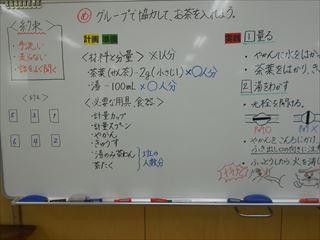 <約束>
・手洗い
・走らない
・話をよく聞く
㋱ グループで協力して、お茶を入れよう。
計画 準備
<材料と分量> ※1人分
・茶葉(せん茶)…2g(小さじ1)×〇人分
・湯…100mL ×〇人分
<必要な用具、食器>
・計量カップ
・計量スプーン
・やかん
・きゅうす
・湯のみ茶わん
・茶たく
班の人数分
実践 1 量る
・やかんに水をはか
・茶葉をはかり、き
2 湯をわかす
・元栓を開ける。
・やかんをこんろに
・ふっとうしたら火を消し
5 3 1
6 4 2